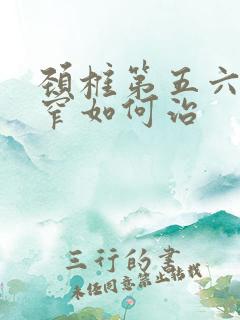 颈椎第五六
窄如何治
三行的书
未经同意禁止转载